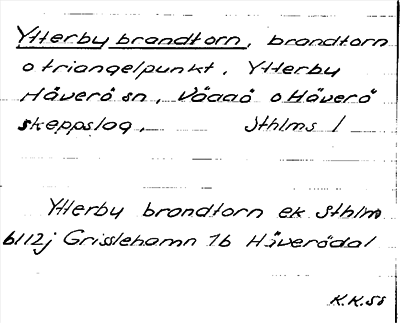 Ytterby brandtorn, brandtorn
o triangelpunkt. Ytterby
Håverö sn, Väddö o Häverö
skeppslag. Sthlms l
Ytterby brandtorn ek Sthlm
6112j Grisslehamn 1b Häverödal
K.K.58